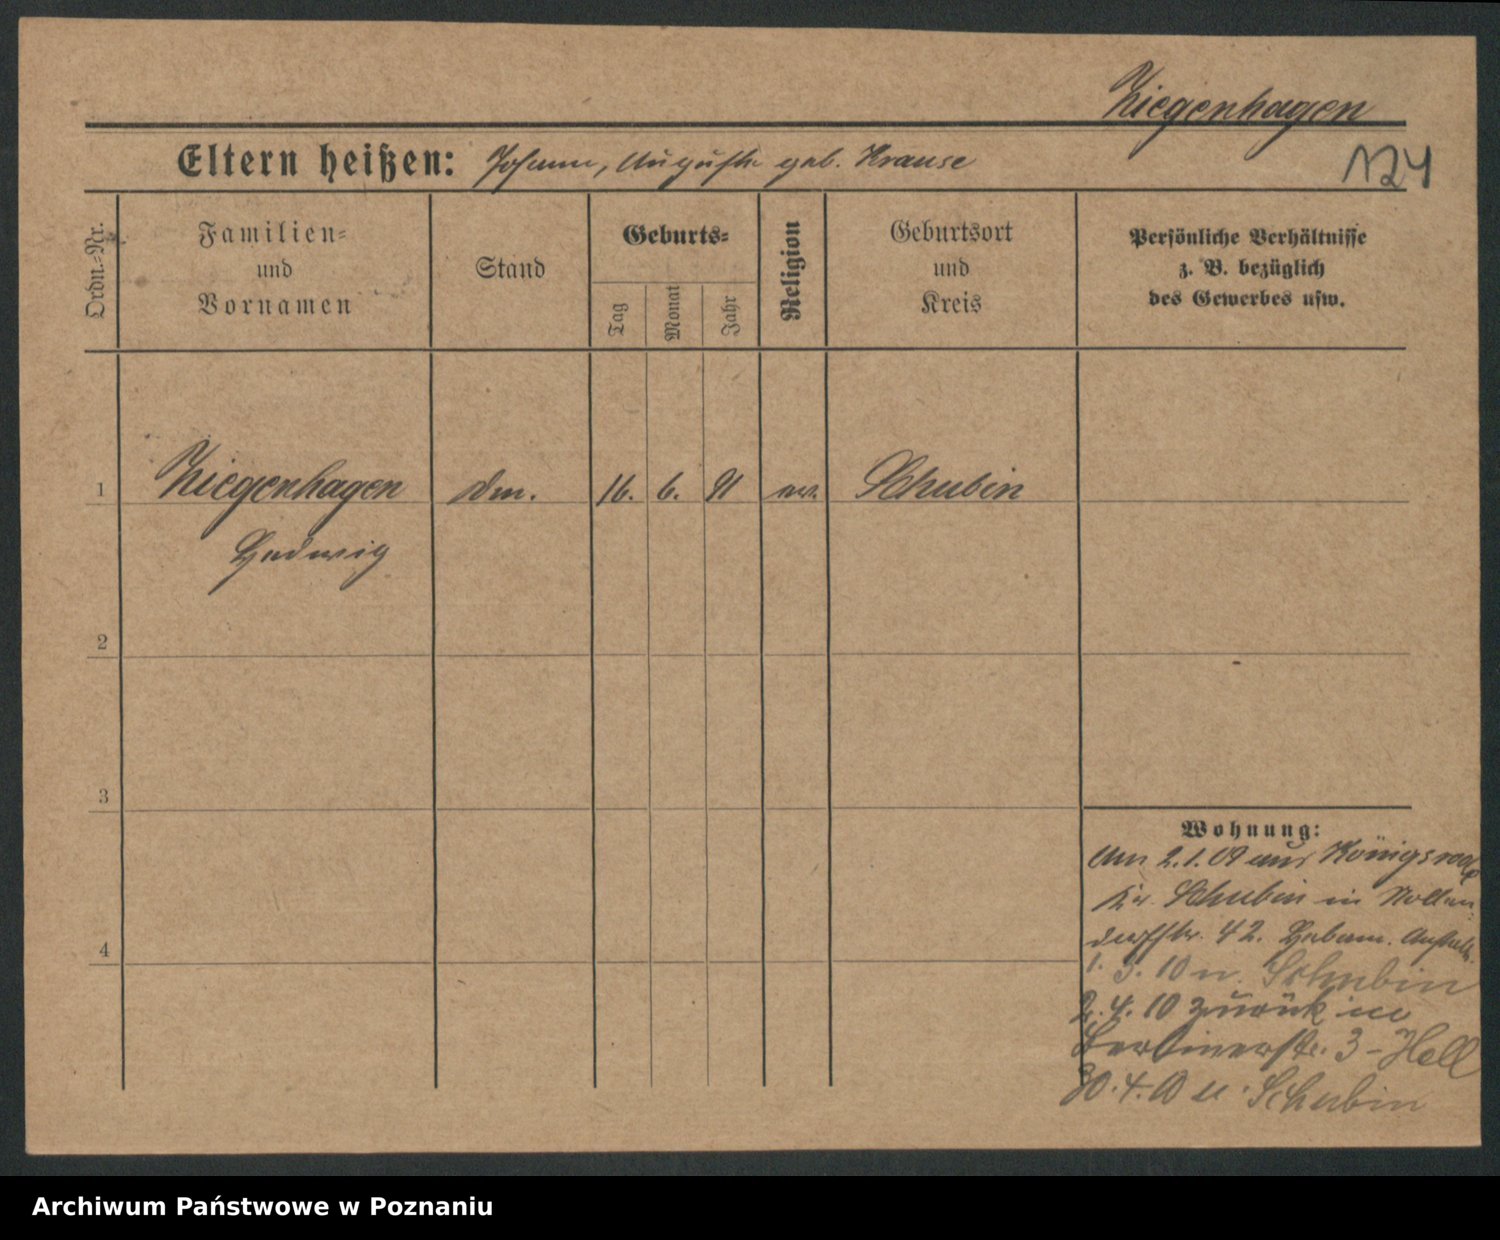 Ziegenhagen
Eltern heißen: Johann, Auguste geb. Krause
1724
Ordn.-Nr.
Familien-
und
Vornamen
Stand
Geburts-
Tag
Monat
Jahr
Religion
Geburtsort
und
Kreis
Persönliche Verhältnisse
z. B. bezüglich
des Gewerbes usw.
1 Ziegenhagen 16. 6. 91 ev. Schubin
Hedwig
2
3
4
Wohnung:
Am 2.1.09 aus Königsrode
Kr. Schubin in Nollen-
dorfstr. 42. Hebam. Anstalt.
1. 3. 10 n. Schubin
2. 4. 10 zurück in
Berlinerstr. 3 - Hell
30. 4. 10 n. Schubin
Archiwum Państwowe w Poznaniu